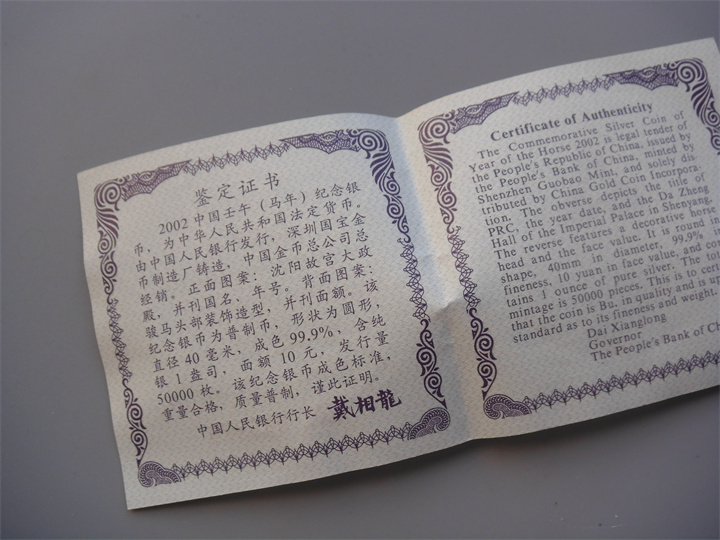 鉴定证书
2002中国壬午（马年）纪念银
币，为中华人民共和国法定货币。
由中国人民银行发行，深圳国宝金
币制造厂铸造，中国金币总公司总
经销。正面图案：沈阳故宫大政
殿，并刊国名、年号。背面图案：
骏马头部装饰造型，并刊面额。该
纪念银币为普制币，形状为圆形，
直径40毫米，成色99.9%，含纯
银1盎司，面额10元，发行量
50000枚。该纪念银币成色标准，
重量合格，质量普制，谨此证明。
中国人民银行行长 戴相龍
Certificate of Authenticity
The Commemorative Silver Coin of
Year of the Horse 2002 is legal tender of
the People's Republic of China, issued by
the People's Bank of China, minted by
Shenzhen Guobao Mint, and solely dis-
tributed by China Gold Coin Incorpora-
tion. The obverse depicts the title of
PRC, the year date, and the Da Zheng
Hall of the Imperial Palace in Shenyang.
The reverse features a decorative horse
head and the face value. It is round in
shape, 40mm in diameter, 99.9%
fineness, 10 yuan in face value, and con
tains 1 ounce of pure silver. The tot
mintage is 50000 pieces. This is to cert
that the coin is BU. in quality and is up
standard as to its fineness and weight.
Dai Xianglong
Governor
The People's Bank of Ch